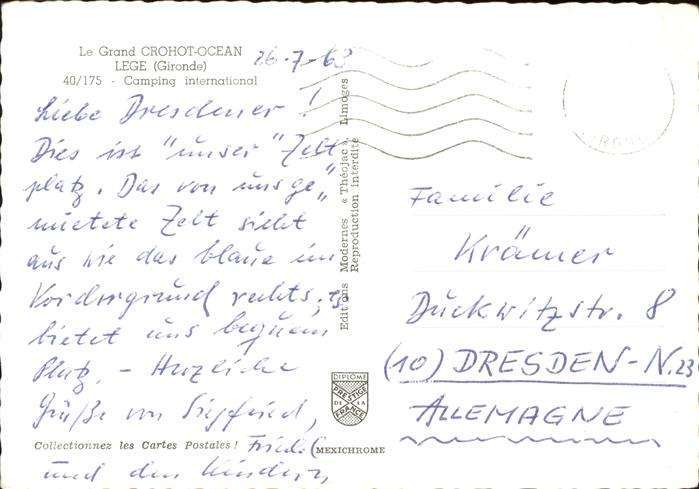 Le Grand CROHOT-OCEAN
LEGE (Gironde)
40/175 - Camping international
26.-7-63
Liebe Dresdener!
Dies ist "unser" Zelt
platz. Das von uns ge„
mietete Zelt sieht
aus wie das blaue im
Vordergrund rechts, es
bietet uns bequem
Platz. - Herzliche
Grüße von Siegfried,
Friedel
und den Kindern,
Collectionnez les Cartes Postales!
MEXICHROME
Editions Modernes « Théojac », Limoges
Reproduction interdite
DIPLOME
PRESTIGE
DE LA
FRANCE
Familie
Krämer
Duckwitzstr. 8
(10) DRESDEN-N.23
ALLEMAGNE